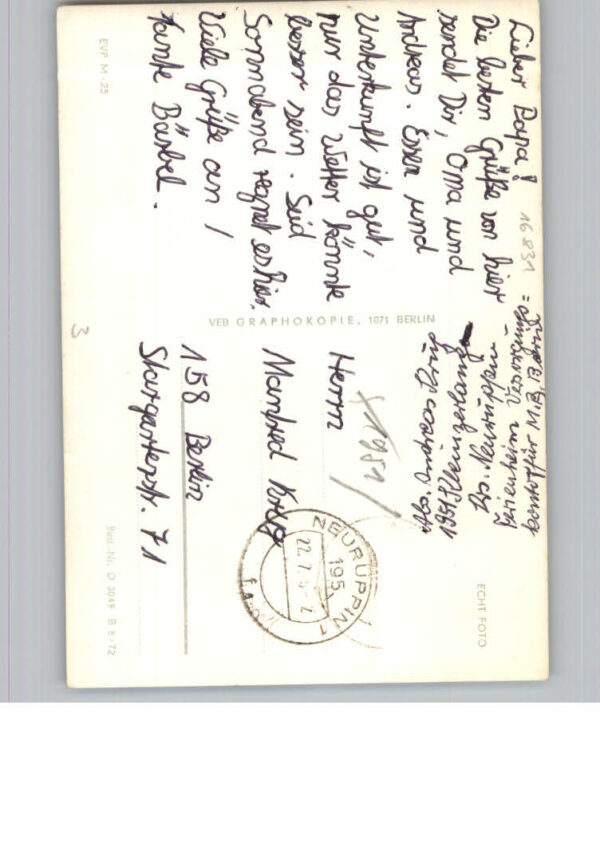 Lieber Papa!
Die besten Grüße von hier
sendet Dir, Oma und
Andreas. Essen und
Unterkunft ist gut,
nur das Wetter könnte
besser sein. Seid
Sonnabend regnet es hier.
Viele Grüße an /
Tante Bärbel.
EVP M -.25
16 831
VEB GRAPHOKOPIE, 1071 BERLIN
3
Abs. Andreas
195
Krs. Neuruppin
Ferienheim
1951
Herrn
Manfred
158 Berlin
Stargarderstr. 71
NEURUPPIN 1
195
22.7.
ECHT FOTO
Best.-Nr. O 3049 B 8/72